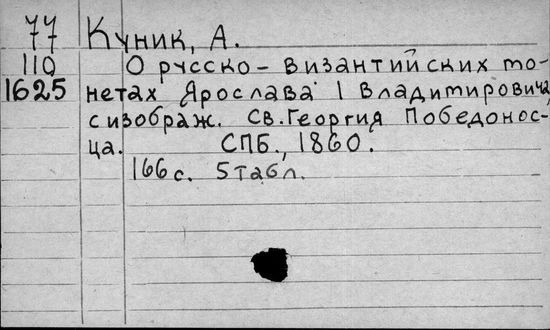 77 Куник, А.
110 О русско-византийских мо-
1625 нетах Ярослава I Владимировича
с изображ. Св. Георгия Победонос-
ца. СПБ., 1860.
166 с. 5 табл.